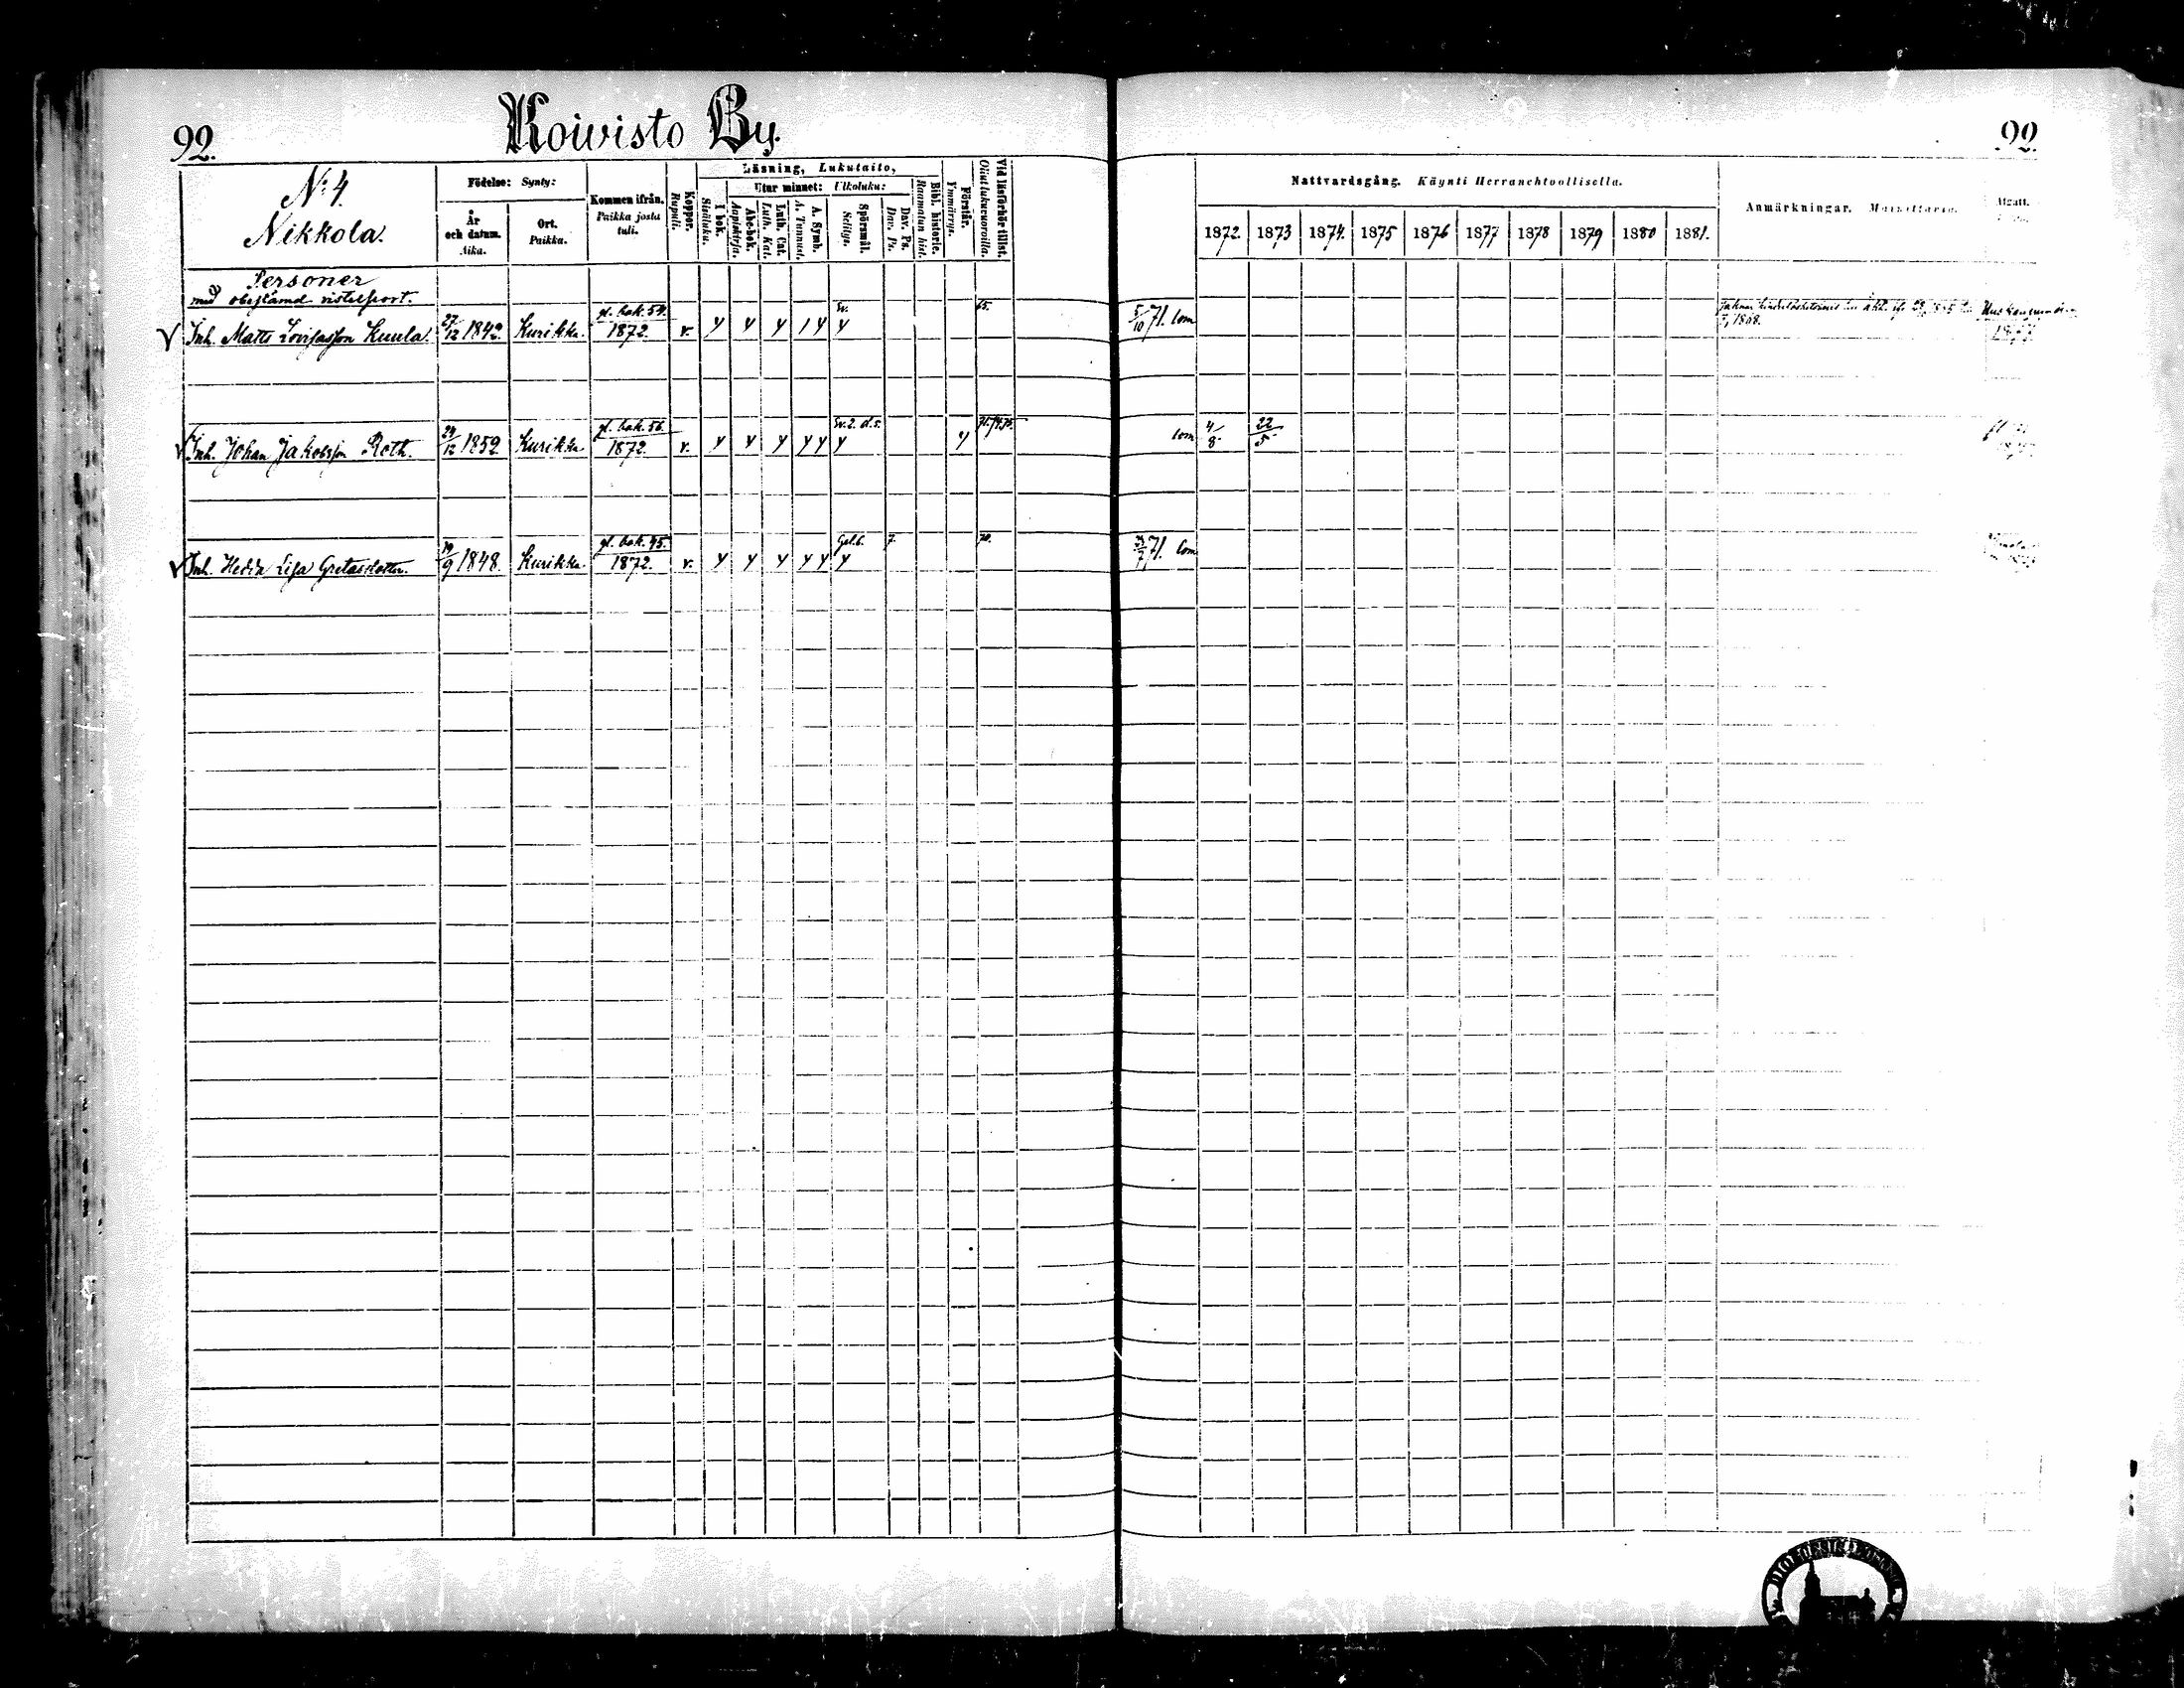 92.
Koivisto By.
92.
No 4.
Nikkola.
Födelse: Synty:
År och datum. Aika.
Ort. Paikka.
Kommen ifrån. Paikka josta tuli.
Koppor. Rupuli.
Läsning, Lukutaito,
I bok. Sisäluku.
Utur minnet: Ulkoluku:
Abc-bok. Aapiskirja.
Luth. Cat. Luth. Kat.
A. Symb. A. Tunnust.
Spörsmål. Selitys.
Dav. Ps. Dav. Ps.
Bibl. historie. Raamatun hist.
Förstår. Ymmärrys.
Vid läsförhör tillst. Ollut lukuvuoroilla.
Nattvardsgång. Käynti Herranehtoollisella.
1872. 1873 1874. 1875 1876 1877 1878 1879 1880 1881.
Anmärkningar. Muistettavia.
Afgått.
Personer
med obestämd vistelseort.
Inh. Matts Lovisasson Kuula. 27/12 1842. Kurikka. gl. bok. 54. 1872. v. y y y 1 y Sv. y 65. 5/10 71. lom
1868.
Inh. Johan Jakobsson Roth. 24/12 1852 Kurikka gl. bok. 56. 1872. v. y y y y y Sv. 2. d. s. y y lom 4/8 22/5
Inh. Hedda Lisa Gretasdotter. 19/9 1848. Kurikka gl. bok. 95. 1872. v. y y y y y Gel. 6. y 7. 70. 71. lom